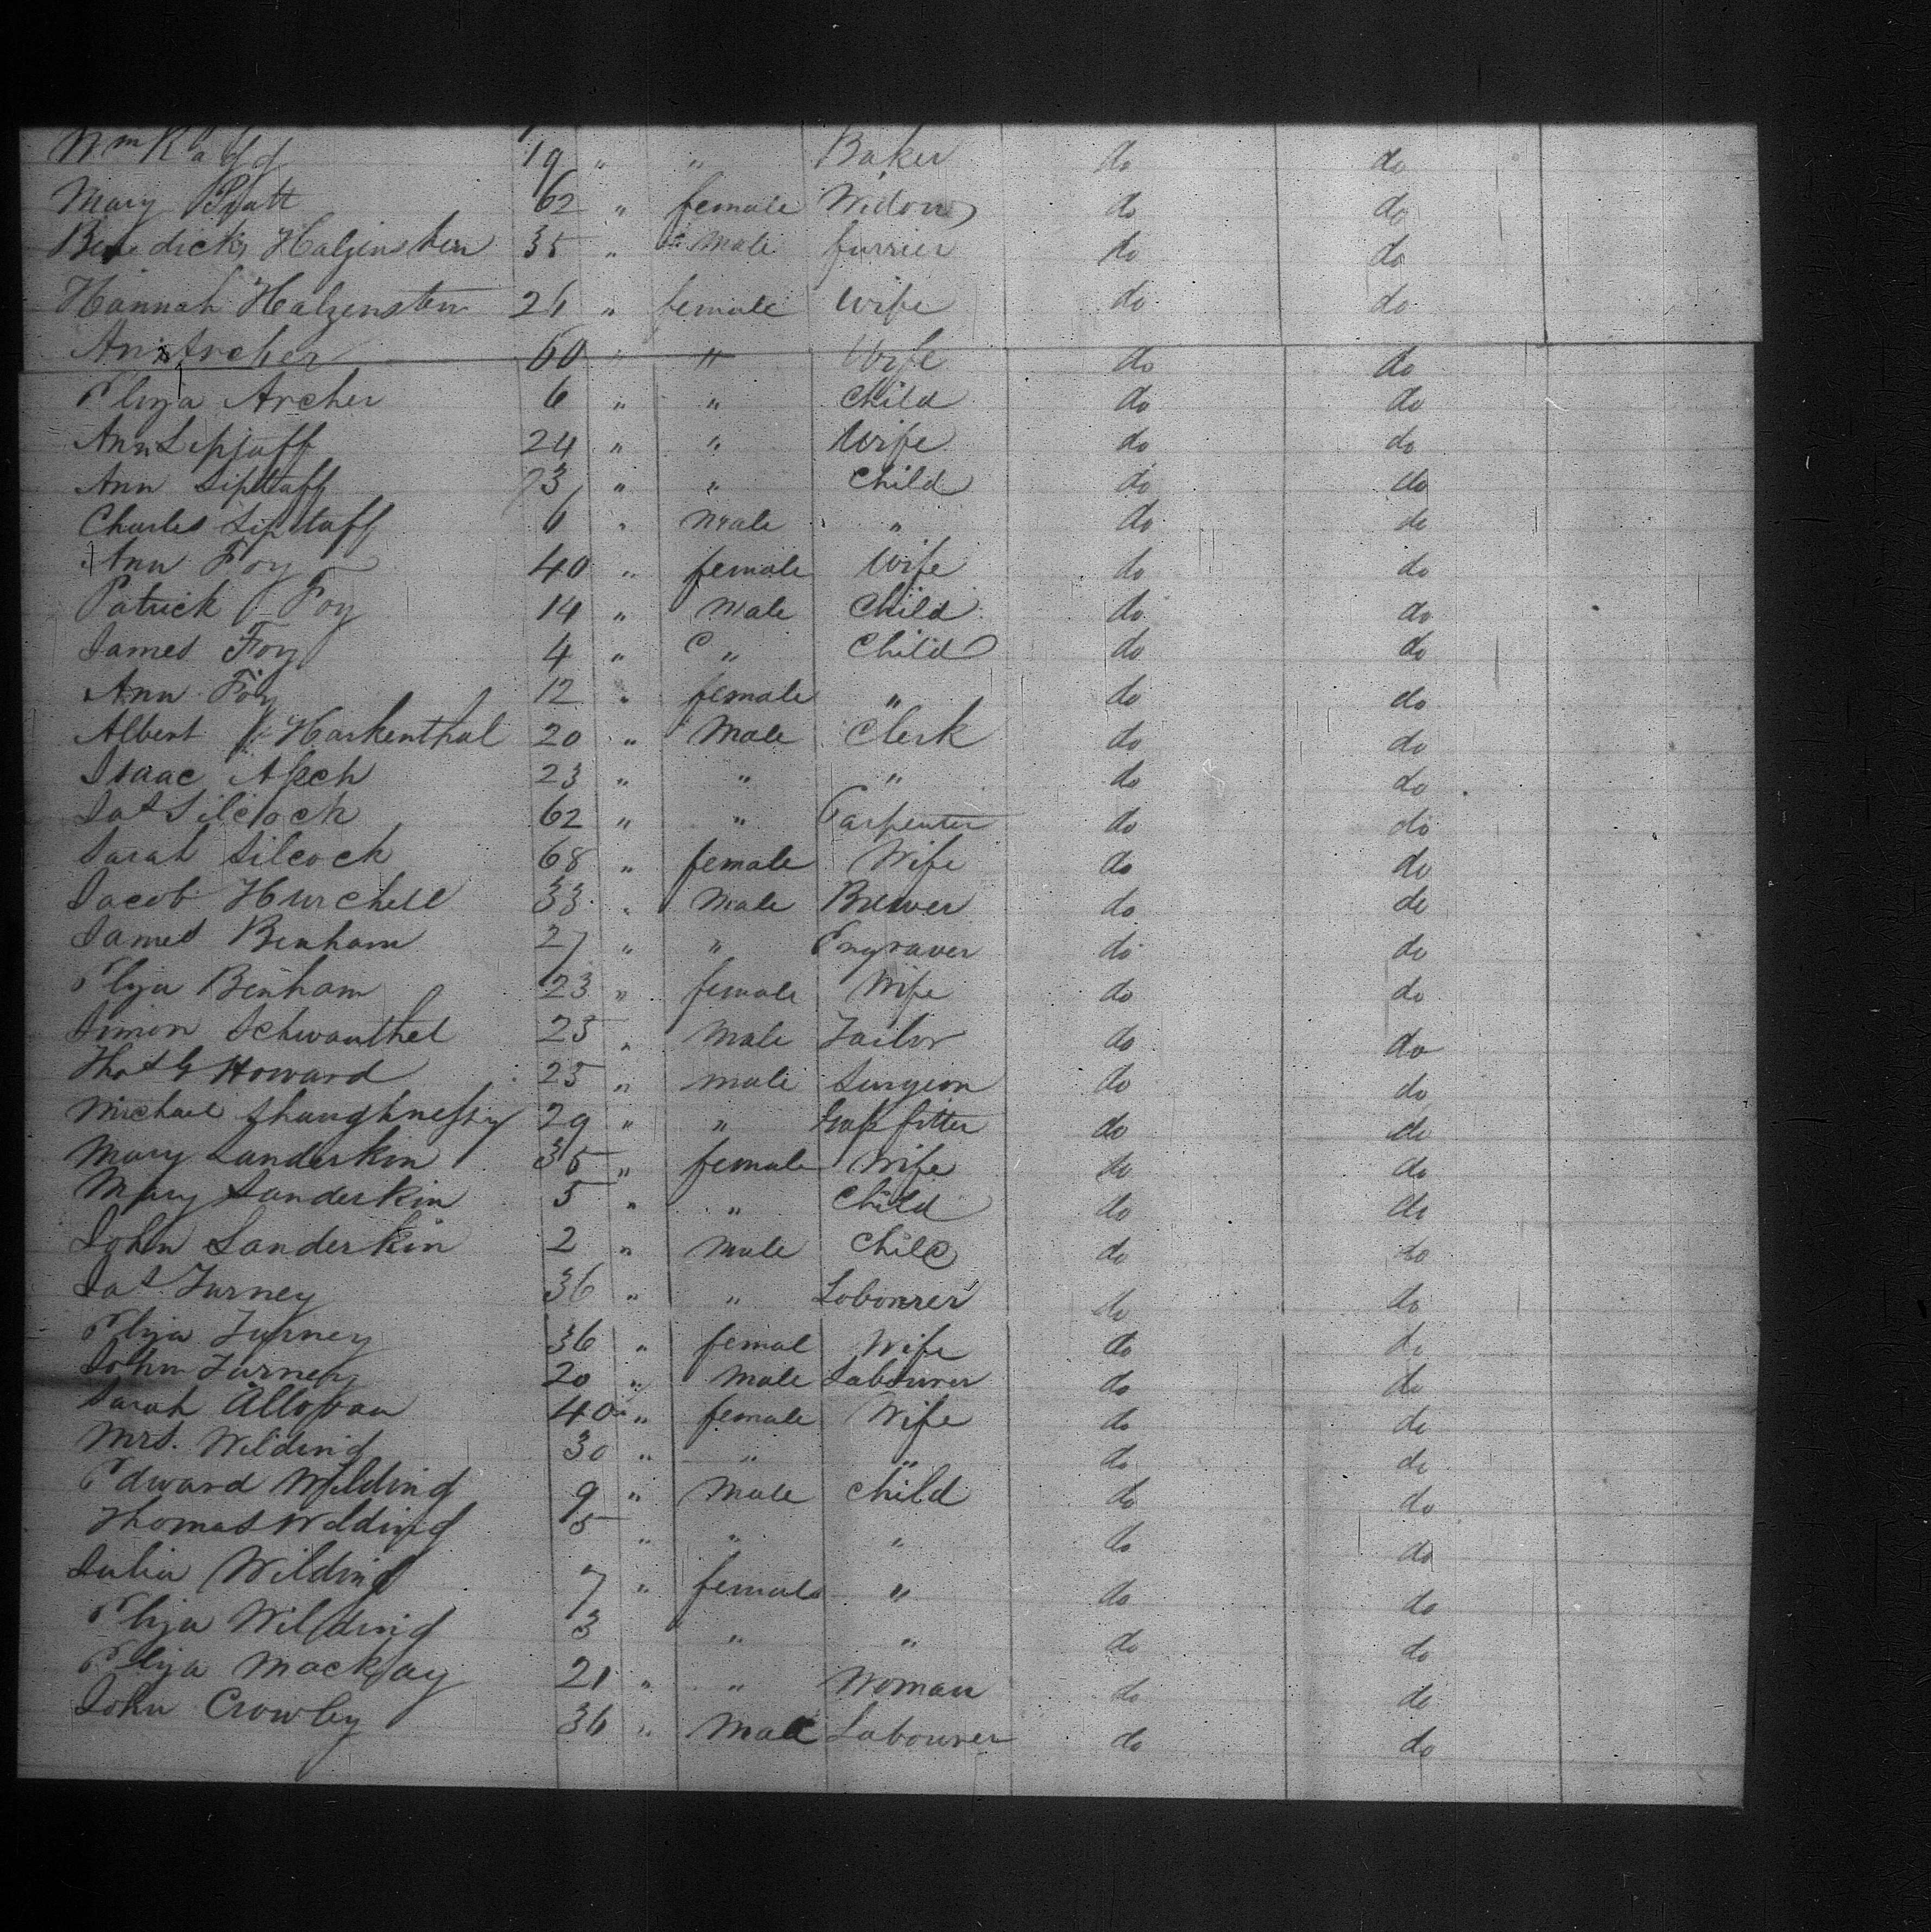 Wm 19 " " Baker do do
Mary Pyatt 62 " female Widow do do
Benedick Halzenstein 35 " male furrier do do
Hannah Halzenstein 26 " female Wife do do
Ann Archer 60 " " Wife do do
Eliza Archer 6 " " Child do do
Ann Lipstaff 24 " " Wife do do
Ann Lipstaff 3 " " Child do do
Charles Lipstaff 6 " male " do do
Ann Foy 40 " female Wife do do
Patrick Foy 14 " male Child do do
James Foy 4 " " Child do do
Ann Foy 12 " female " do do
Albert Harkenthal 20 " Male Clerk do do
Isaac Asch 23 " " " do do
Jas Silcock 62 " " Carpenter do do
Sarah Silcock 68 " female Wife do do
Jacob Hurchell 33 " Male Brewer do do
James Benham 27 " " Engraver do do
Eliza Benham 23 " female Wife do do
Simon Schwanthel 25 " Male Tailor do do
Thos G Howard 25 " male Surgeon do do
Michael Shaughnessy 29 " " Gass fitter do do
Mary Sanderkin 35 " female Wife do do
Mary Sanderkin 5 " " Child do do
John Sanderkin 2 " Male Child do do
Jas Turney 36 " " Labourer do do
Eliza Turney 36 " femal Wife do do
John Turney 20 " Male Labourer do do
Sarah 40 " female Wife do do
Mrs. Wilding 30 " " " do do
Edward Wilding 9 " Male Child do do
Thomas Wilding 5 " " " do do
Julia Wilding 7 " female " do do
Eliza Wilding 3 " " " do do
Eliza Mackay 21 " " Woman do do
John Crowley 36 " Male Labourer do do